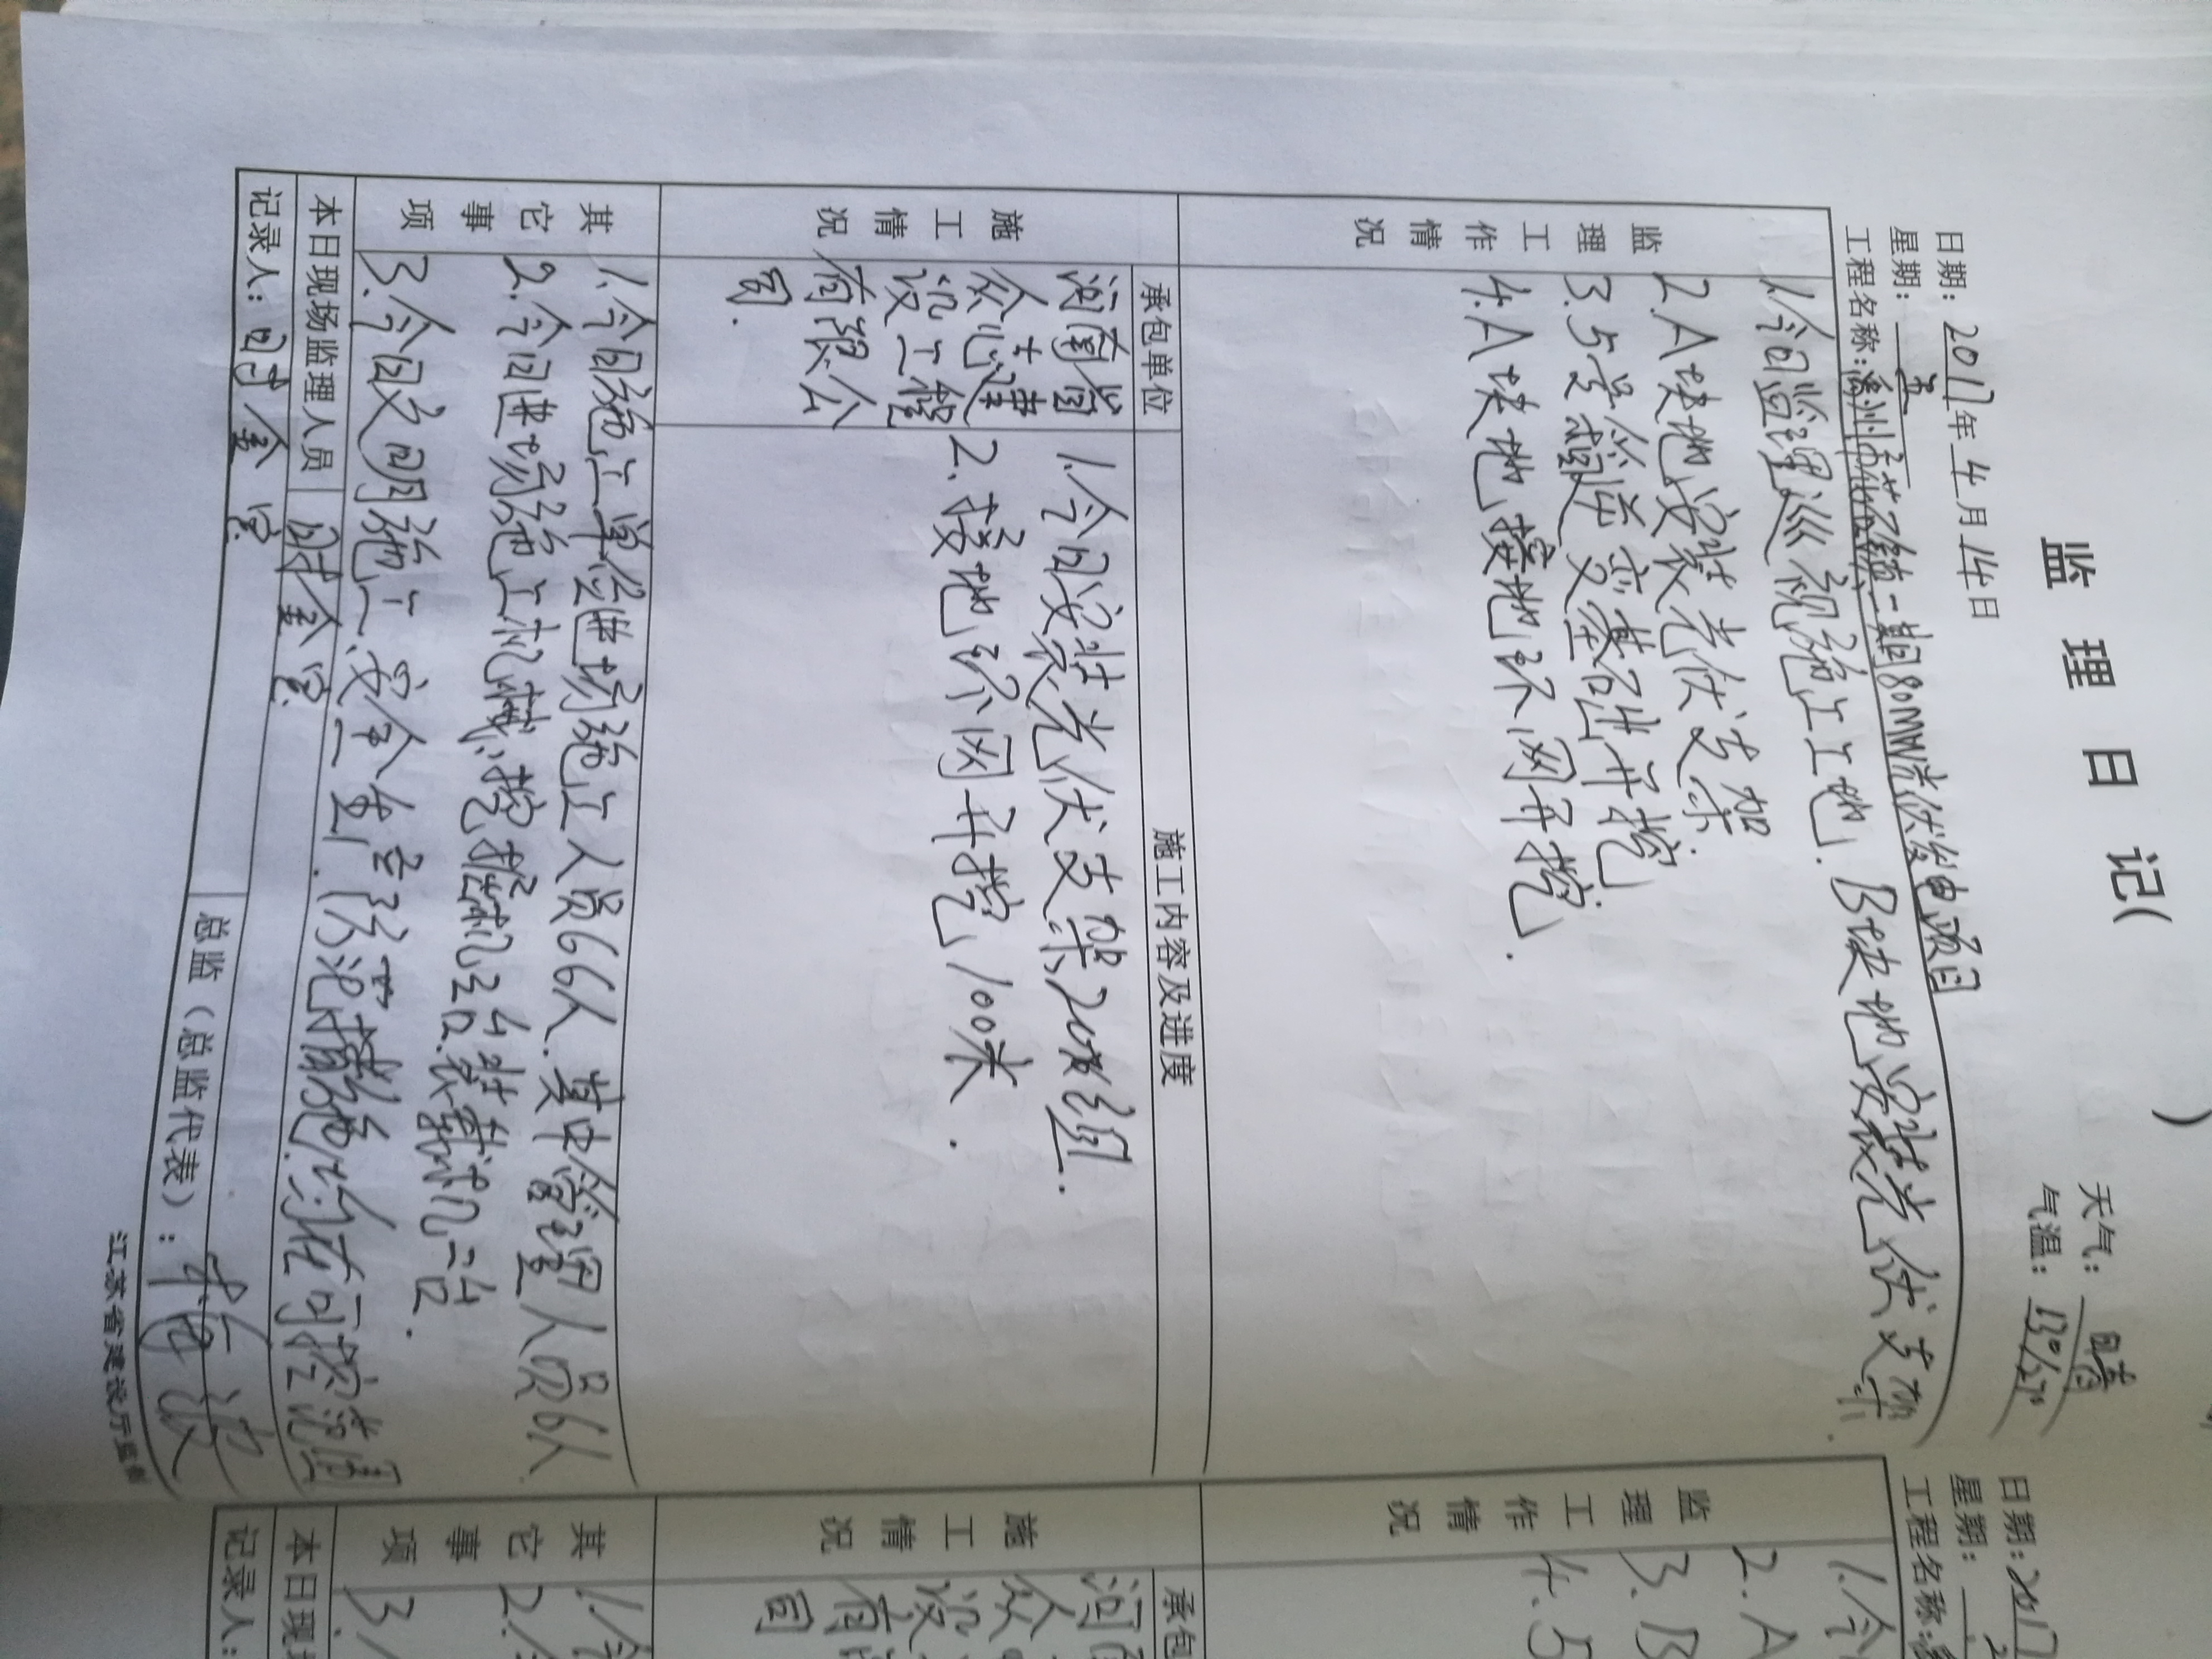 监 理 日 记 ( )
日期: 2017年4月14日
天气: 晴
星期: 五
气温: 13°/27°
工程名称: 一期80MW光伏发电项目
监理工作情况
1.今日监理巡视施工工地.B块地安装光伏支架.
2.A块地安装光伏支架.
3.5号箱逆变基础开挖.
4.A块地接地环网开挖.
施工情况
承包单位
施工内容及进度
河南省
众心建
设工程
有限公
司.
1.今日安装光伏支架20组.
2.接地环网开挖100米.
其它事项
1.今日施工单位进场施工人员66人.其中管理人员6人.
2.今日进场施工机械:挖掘机3台.装载机二台.
3.今日文明施工.安全.质.防范措施均在可控范围
本日现场监理人员 时金
记录人: 时金
总监（总监代表）:
江苏省建设厅监制
日期: 2017
星期:
工程名称:
监理工作情况
1.今
2.A
3.B
4.5
施工情况
承包
河南
众
设
有
司
其它事项
1.今
2.
3.
本日现场
记录人: